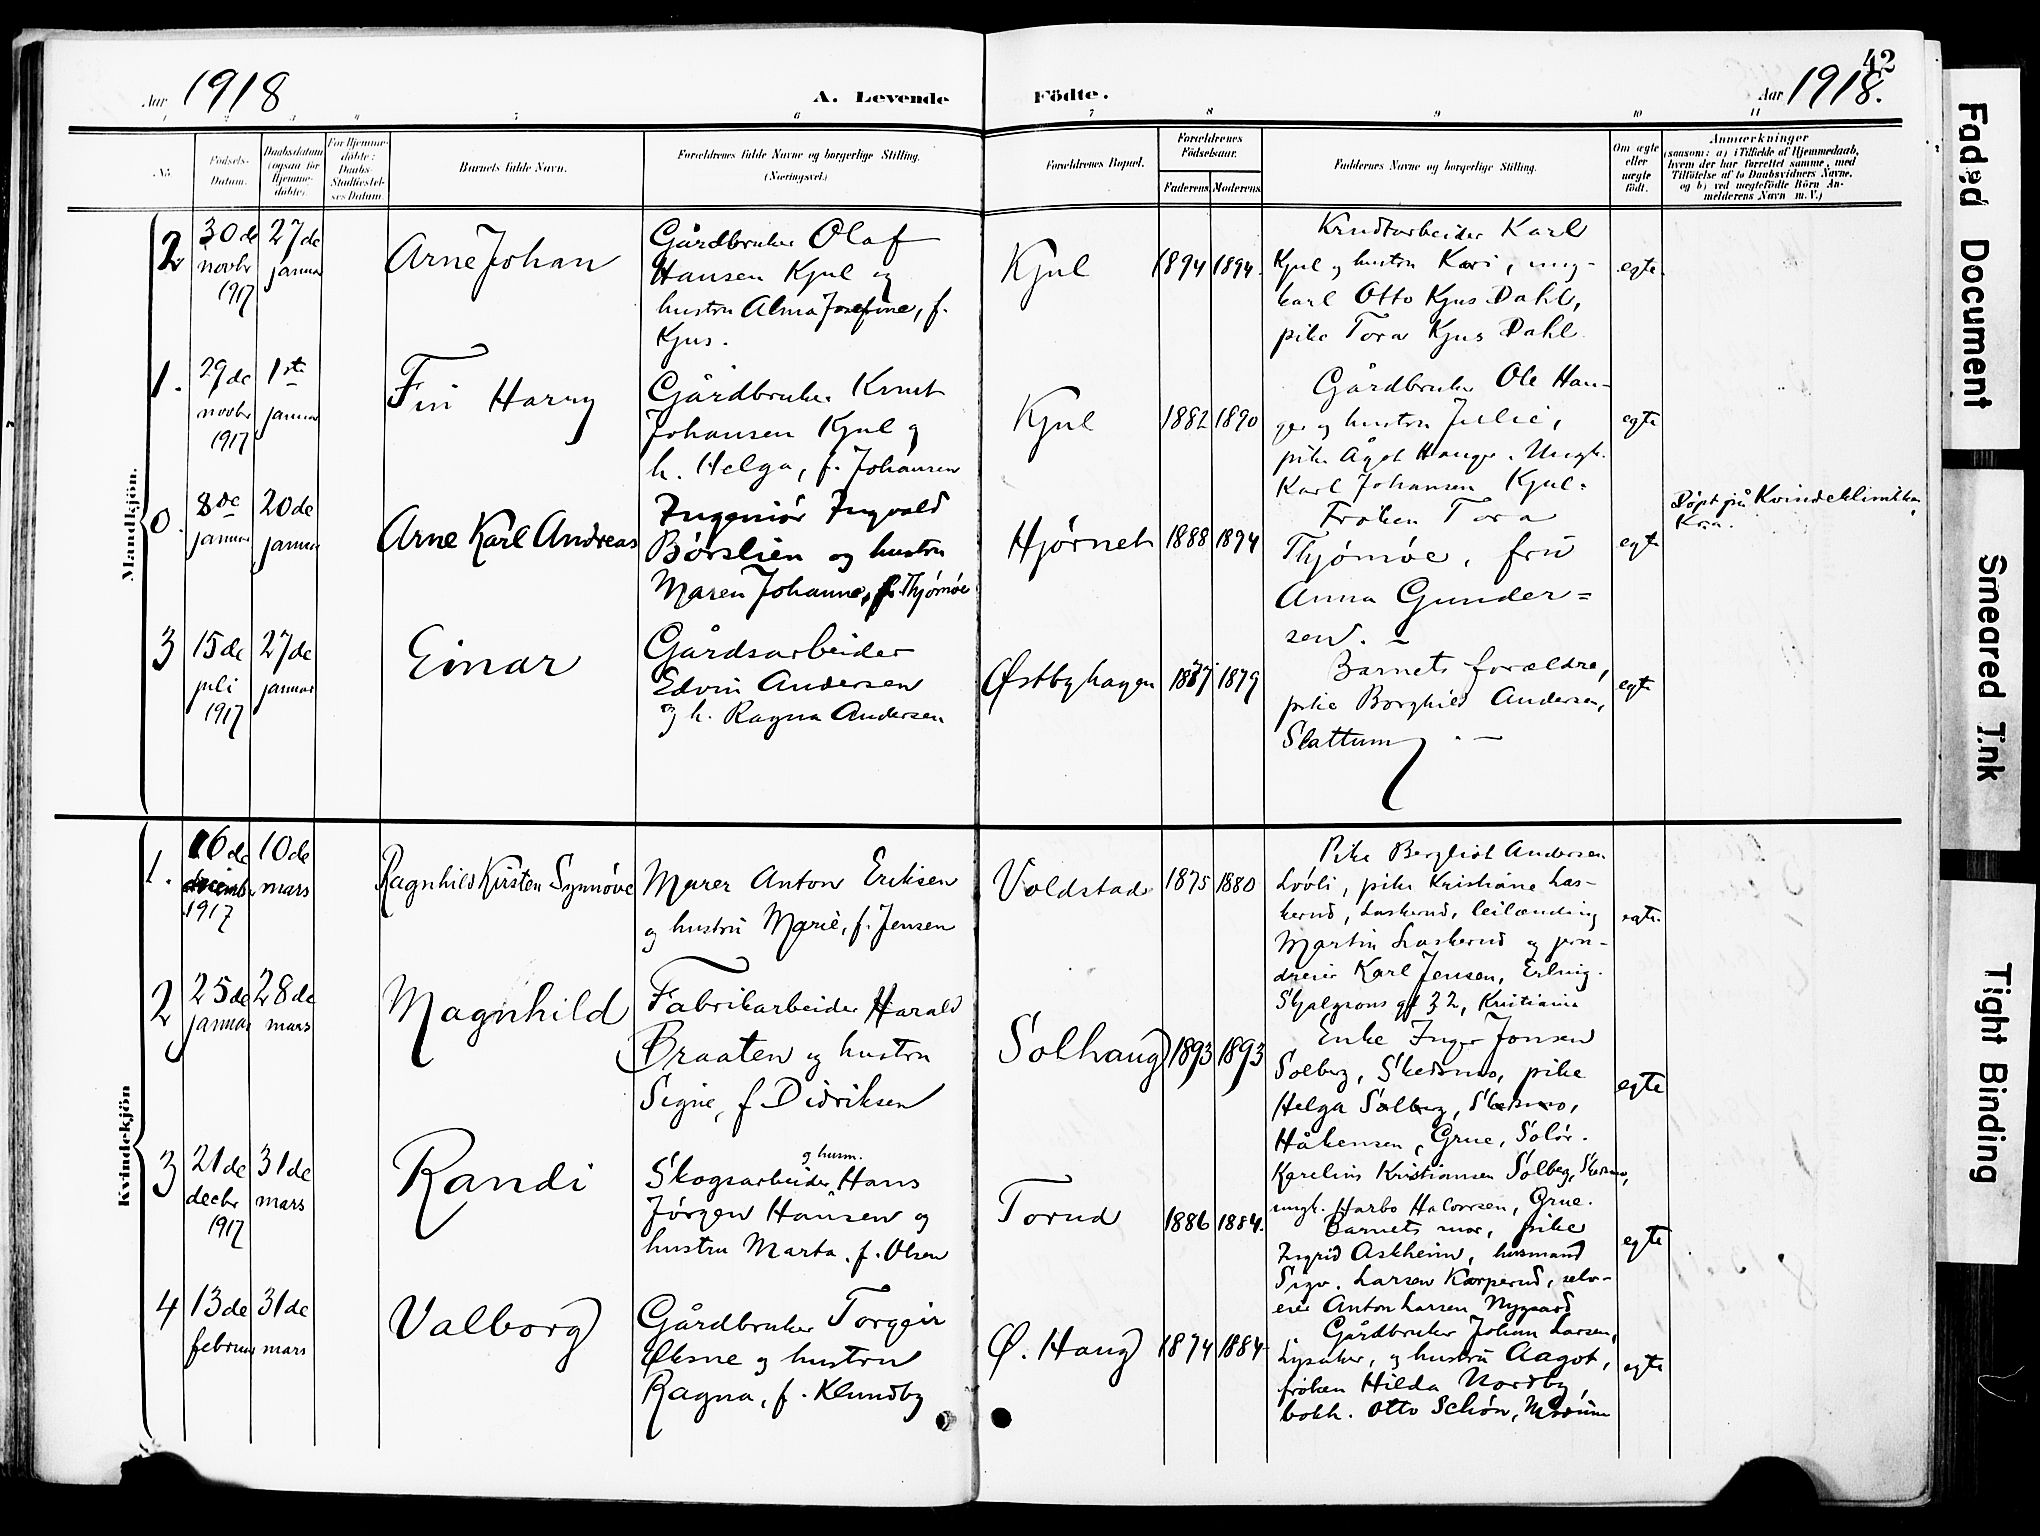 42
Aar 1918
A. Levende
Födte.
Aar 1918.
1 2 3 4 5 6 7 8 9 10 11
No.
Födsels-
Datum.
Daabsdatum
(ogsaa for
Hjemme-
döbte).
For Hjemme-
döbte:
Daabs-
Stadfæstel-
ses Datum.
Barnets fulde Navn.
Forældrenes fulde Navne og borgerlige Stilling.
(Næringsvei.)
Forældrenes Bopæl.
Forældrenes
Födselsaar.
Faderens
Moderens
Faddernes Navne og borgerlige Stilling.
Om ægte
eller
uægte
födt.
Anmærkninger
(saasom: a) i Tilfælde af Hjemmedaab,
hvem der har forrettet samme, med
Tilföielse af to Daabsvidners Navne.
og b) ved uægtefödte Börn An-
melderens Navn m. V.)
Mandkjön.
2
30de
novbr
1917
27de
januar
Arne Johan
Gårdbruker Olaf
Hansen Kjul og
hustru Alma Josefine, f.
Kjus.
Kjul
1894
1894.
Krudtarbeider Karl
Kjul og hustru Kari, ung-
karl Otto Kjus Dahl,
pike Tora Kjus Dahl.
egte
1.
29de
novbr
1917
1ste
januar
Fin Harry
Gårdbruker Knut
Johansen Kjul og
h. Helga, f. Johansen
Kjul
1882
1890
Gårdbruker Ole Hau-
ger og hustru Julie,
pike Ågot Hauger. Ungk.
Karl Johansen Kjul.
egte
0.
8de
januar
20de
januar
Arne Karl Andreas
Ingeniør Ingvald
Børslien og hustru
Maren Johanne, f. Thjømøe
Hjørnet
1888
1894
Frøken Tora
Thjømøe, fru
Anna Gunder=
sen. –
egte
Døpt på Kvindeklinikken,
Kra.
3
15de
juli
1917
27de
januar
Einar
Gårdsarbeider
Edvin Andersen
og h. Ragna Andersen
Østbyhagen
1877
1879
Barnets forældre,
pike Borghild Andersen,
Slattum . –
egte
Kvindekjön
1.
16de
decembr
1917
10de
mars
Ragnhild Kirsten Synnøve
Murer Anton Eriksen
og hustru Marie, f. Jensen
Voldstad
1875
1880
Pike Bergliot Andersen
Løvli, pike Kristiane Las-
kerud, Laskerud, leilænding
Martin Laskerud og jern-
dreier Karl Jensen, Erling.
Skjalgsons gt 32, Kristiania
egte.
2
25de
januar
28de
mars
Magnhild
Fabrikarbeider Harald
Braaten og hustru
Signe, f Didriksen
Solhaug
1893
1893
Enke Inger Jonsen
Solberg, Skedsmo, pike
Helga Solberg, Skedsmo,
Håkensen, Grue, Solør.
Karelius Kristiansen Solberg, Skedsmo,
ungk. Harbo Halvorsen, Grue.
egte
3
21de
decbr
1917
31de
mars
Randi
og husm.
Skogsarbeider Hans
Jørgen Hansen og
hustru Marta, f. Olsen
Torud
1886
1884.
Barnets mor, pike
Ingrid Askheim, husmand
Sigv. Larsen Kasperud, selv-
eier Anton Larsen Nygaard
egte
4
13de
februar
31de
mars
Valborg
Gårdbruker Torgeir
Øksne og hustru
Ragna, f. Klundby
Ø. Haug
1874
1884
Gårdbruker Johan Larsen,
Lysaker, og hustru Aagot,
frøken Hilda Nordby,
bokh. Otto Schøn, Modum
egte
Faded Document
Smeared Ink
Tight Binding